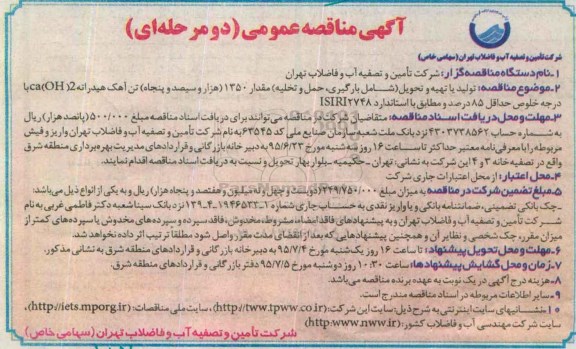 آگهی مناقصه عمومی (دو مرحله‌ای)
شرکت تأمین و تصفیه آب و فاضلاب تهران (سهامی خاص)
۱-نام دستگاه مناقصه‌گزار: شرکت تأمین و تصفیه آب و فاضلاب تهران
۲-موضوع مناقصه: تولید یا تهیه و تحویل (شامل بارگیری، حمل و تخلیه) مقدار ۱۳۵۰ (هزار و سیصد و پنجاه) تن آهک هیدراته ca(OH)2 با
درجه خلوص حداقل ۸۵ درصد و مطابق با استاندارد ISIRI۲۷۴۸
۳-مهلت و محل دریافت اسناد مناقصه: متقاضیان شرکت در مناقصه می‌توانند برای دریافت اسناد مناقصه مبلغ ۵۰۰/۰۰۰ (پانصد هزار) ریال
به شماره حساب ۴۳۰۳۷۳۸۵۶۲ نزد بانک ملت شعبه سازمان صنایع ملی کد ۶۳۵۴۵ به نام شرکت تأمین و تصفیه آب و فاضلاب تهران واریز و فیش
مربوطه را با معرفی‌نامه معتبر حداکثر تا ساعت ۱۶ روز سه‌شنبه مورخ ۹۵/۶/۲۳ به دبیرخانه بازرگانی و قراردادهای مدیریت بهره‌برداری منطقه شرق
واقع در تصفیه خانه ۳ و ۴ این شرکت به نشانی: تهران-حکیمیه-بلوار بهار تحویل و نسبت به دریافت اسناد مناقصه اقدام نمایند.
۴-محل اعتبار: از محل اعتبارات جاری شرکت
۵-مبلغ تضمین شرکت در مناقصه: به میزان مبلغ ۲۴۹/۷۵۰/۰۰۰ (دویست و چهل و نه میلیون و هفتصد و پنجاه هزار) ریال و به یکی از انواع ذیل می‌باشد:
-چک بانکی تضمینی، ضمانتنامه بانکی و یا واریز نقدی به حساب جاری شماره ۱-۱۹۴۶۵۳۲-۴-۱۳۹ نزد بانک سینا شعبه دکتر فاطمی غربی به نام
شرکت تأمین و تصفیه آب و فاضلاب تهران و به پیشنهادهای فاقد امضاء، مشروط، مخدوش، فاقد سپرده و سپرده‌های مخدوش یا سپرده‌های کمتر از
میزان مقرر، چک شخصی و نظایر آن و همچنین پیشنهادهایی که بعد از انقضای مدت مقرر واصل شود مطلقا ترتیب اثر داده نخواهد شد.
۶-مهلت و محل تحویل پیشنهادها: تا ساعت ۱۶ روز یک‌شنبه مورخ ۹۵/۷/۴ به دبیرخانه بازرگانی و قراردادهای منطقه شرق به نشانی مذکور.
۷-زمان و محل گشایش پیشنهادها: ساعت ۱۰:۳۰ روز دوشنبه مورخ ۹۵/۷/۵ دفتر بازرگانی و قراردادهای منطقه شرق.
۸-هزینه درج آگهی در یک نوبت به عهده برنده مناقصه می‌باشد.
۹-سایر اطلاعات مربوطه در اسناد مناقصه مندرج است.
۱۰-نشانیهای سایت اینترنتی به شرح ذیل: سایت این شرکت: (http://tww.tpww.co.ir)، سایت ملی مناقصات: (http://iets.mporg.ir)،
سایت شرکت مهندسی آب و فاضلاب کشور: (http:www.nww.ir)
شرکت تأمین و تصفیه آب و فاضلاب تهران (سهامی خاص)